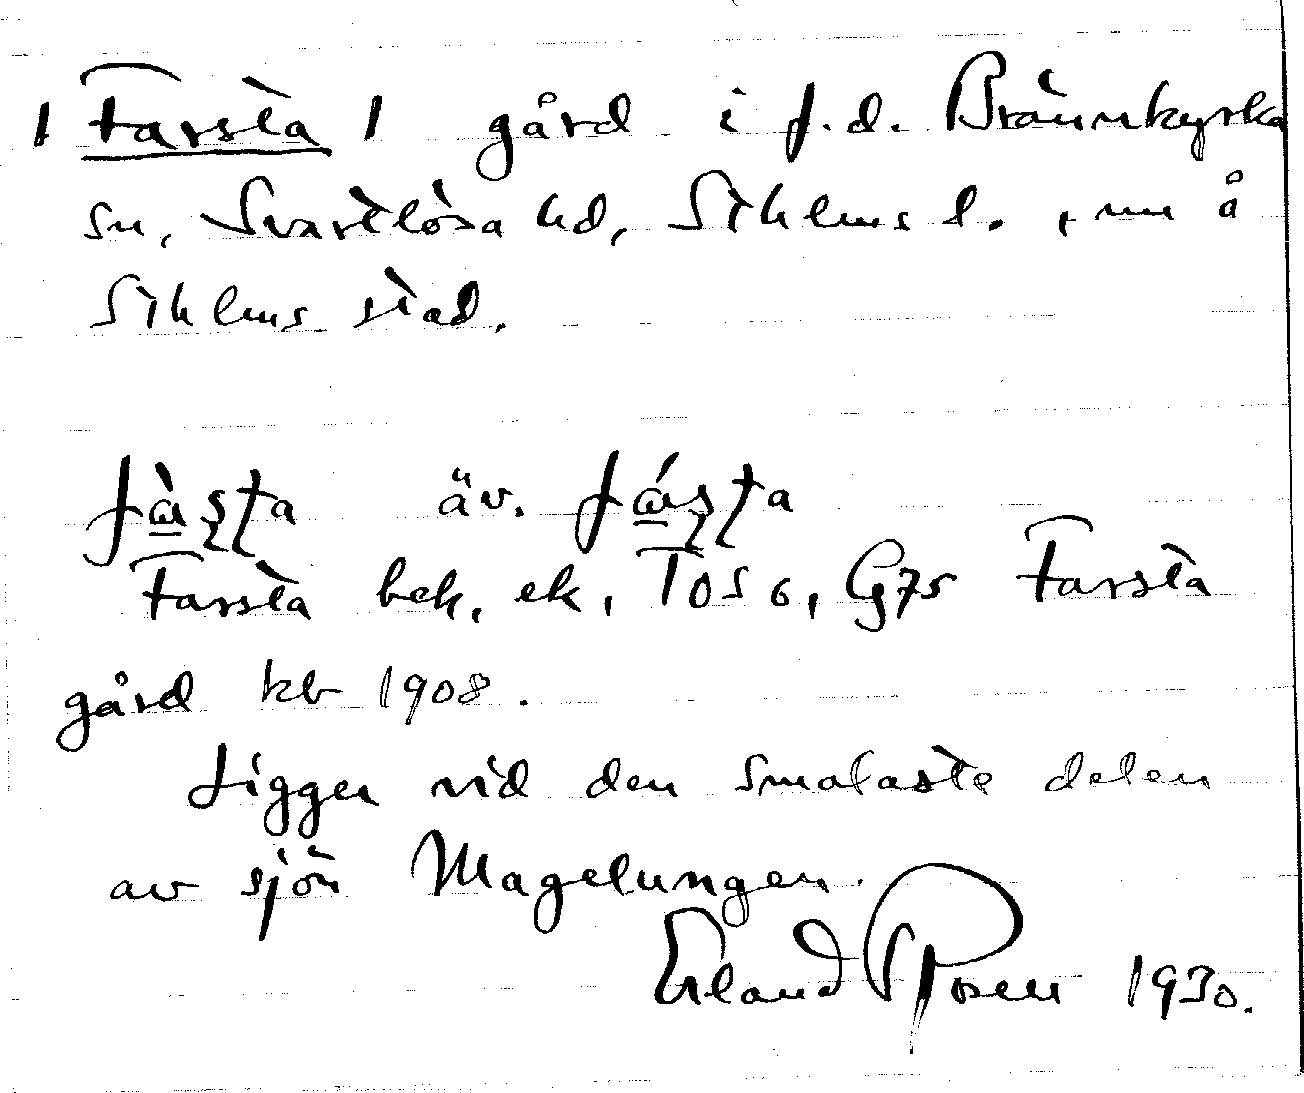 1 Farsta 1 gård i f.d. Brännkyrka
sn, Svartlösa hd, Sthlms l., nu å
Sthlms stad.
fàʂʈa äv. fáʂʈa
Farsta bek, ek, TOS 6, G75 Farsta
gård kb 1908.
Ligger vid den smalaste delen
av sjön Magelungen.
Erland Rosell 1930.